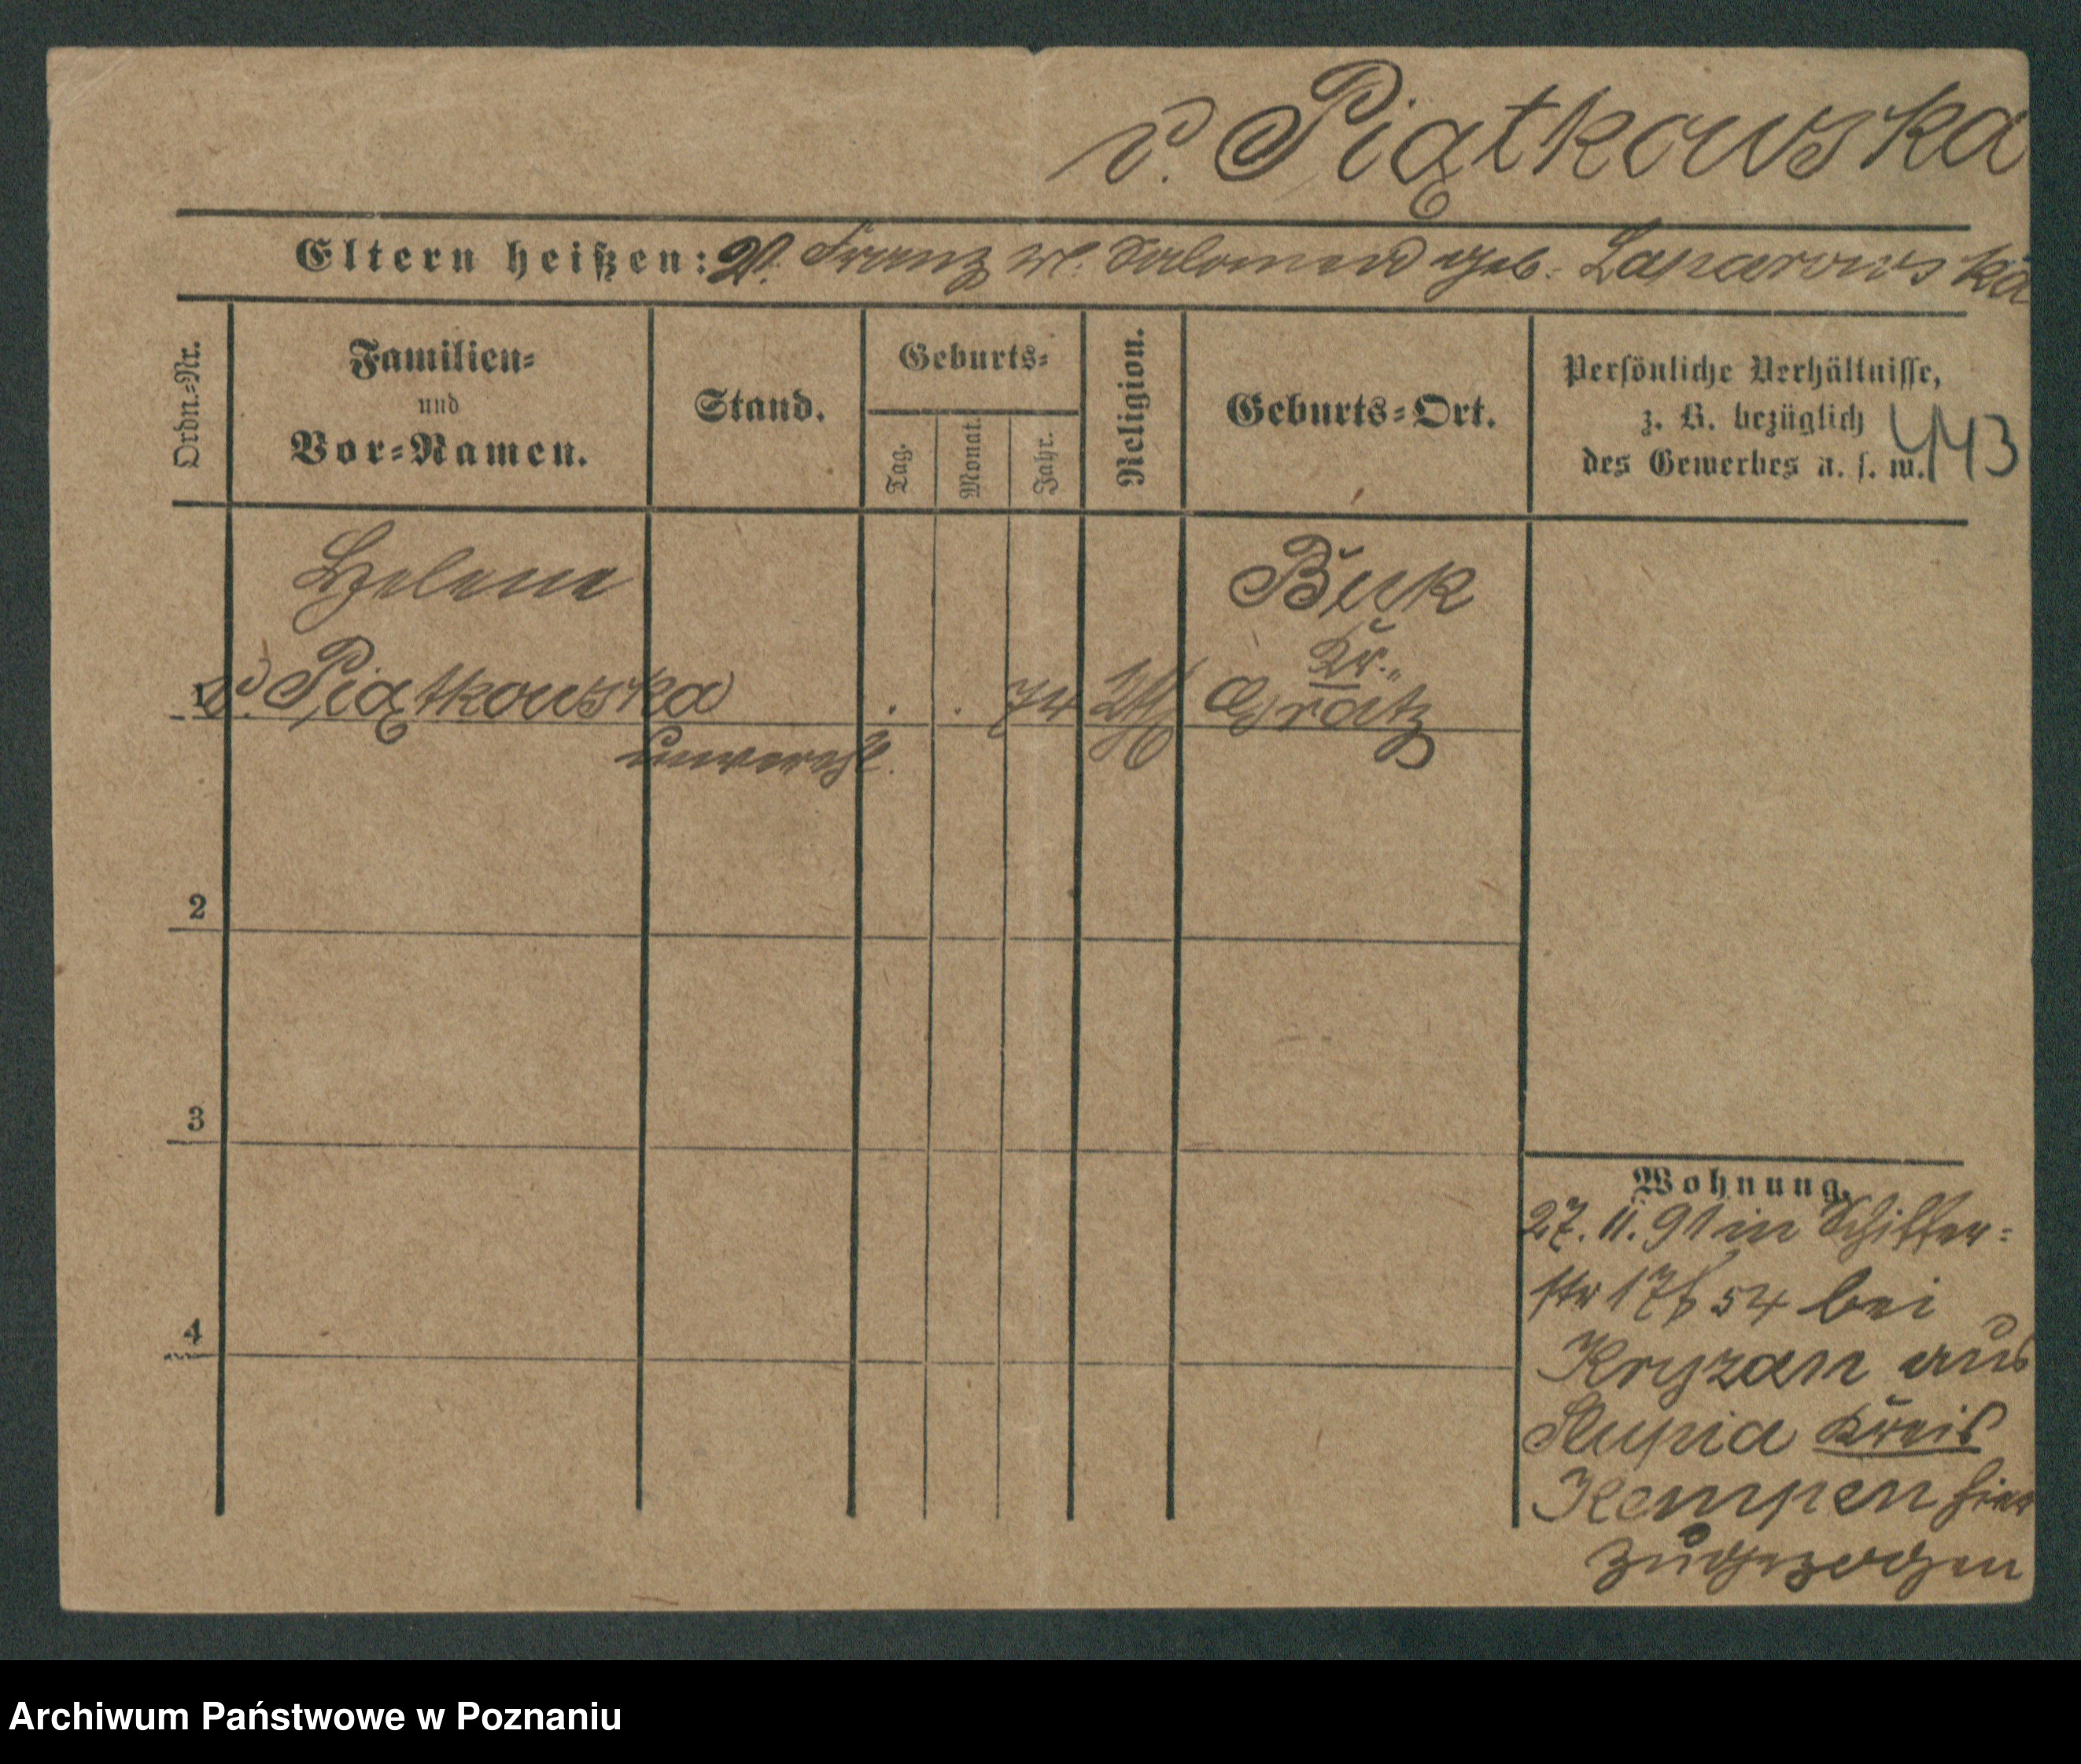 v. Piątkowska
Eltern heißen: V. Franz M. Salomea geb. Laparowska
Ordn.-Nr.
Familien-
und
Vor-Namen.
Stand.
Geburts-
Tag.
Monat.
Jahr.
Religion.
Geburts-Ort.
Persönliche Verhältnisse,
z. B. bezüglich
des Gewerbes u. s. w.
443
Helene
v. Piątkowska
unverehl.
1
. . 74
Buk
Kr.
Grätz
2
3
4
Wohnung.
27. 11. 91 in Schiffer-
str 17 b 54 bei
Kryzan aus
Slupia Kreis
Kempen hier
zugezogen
Archiwum Państwowe w Poznaniu